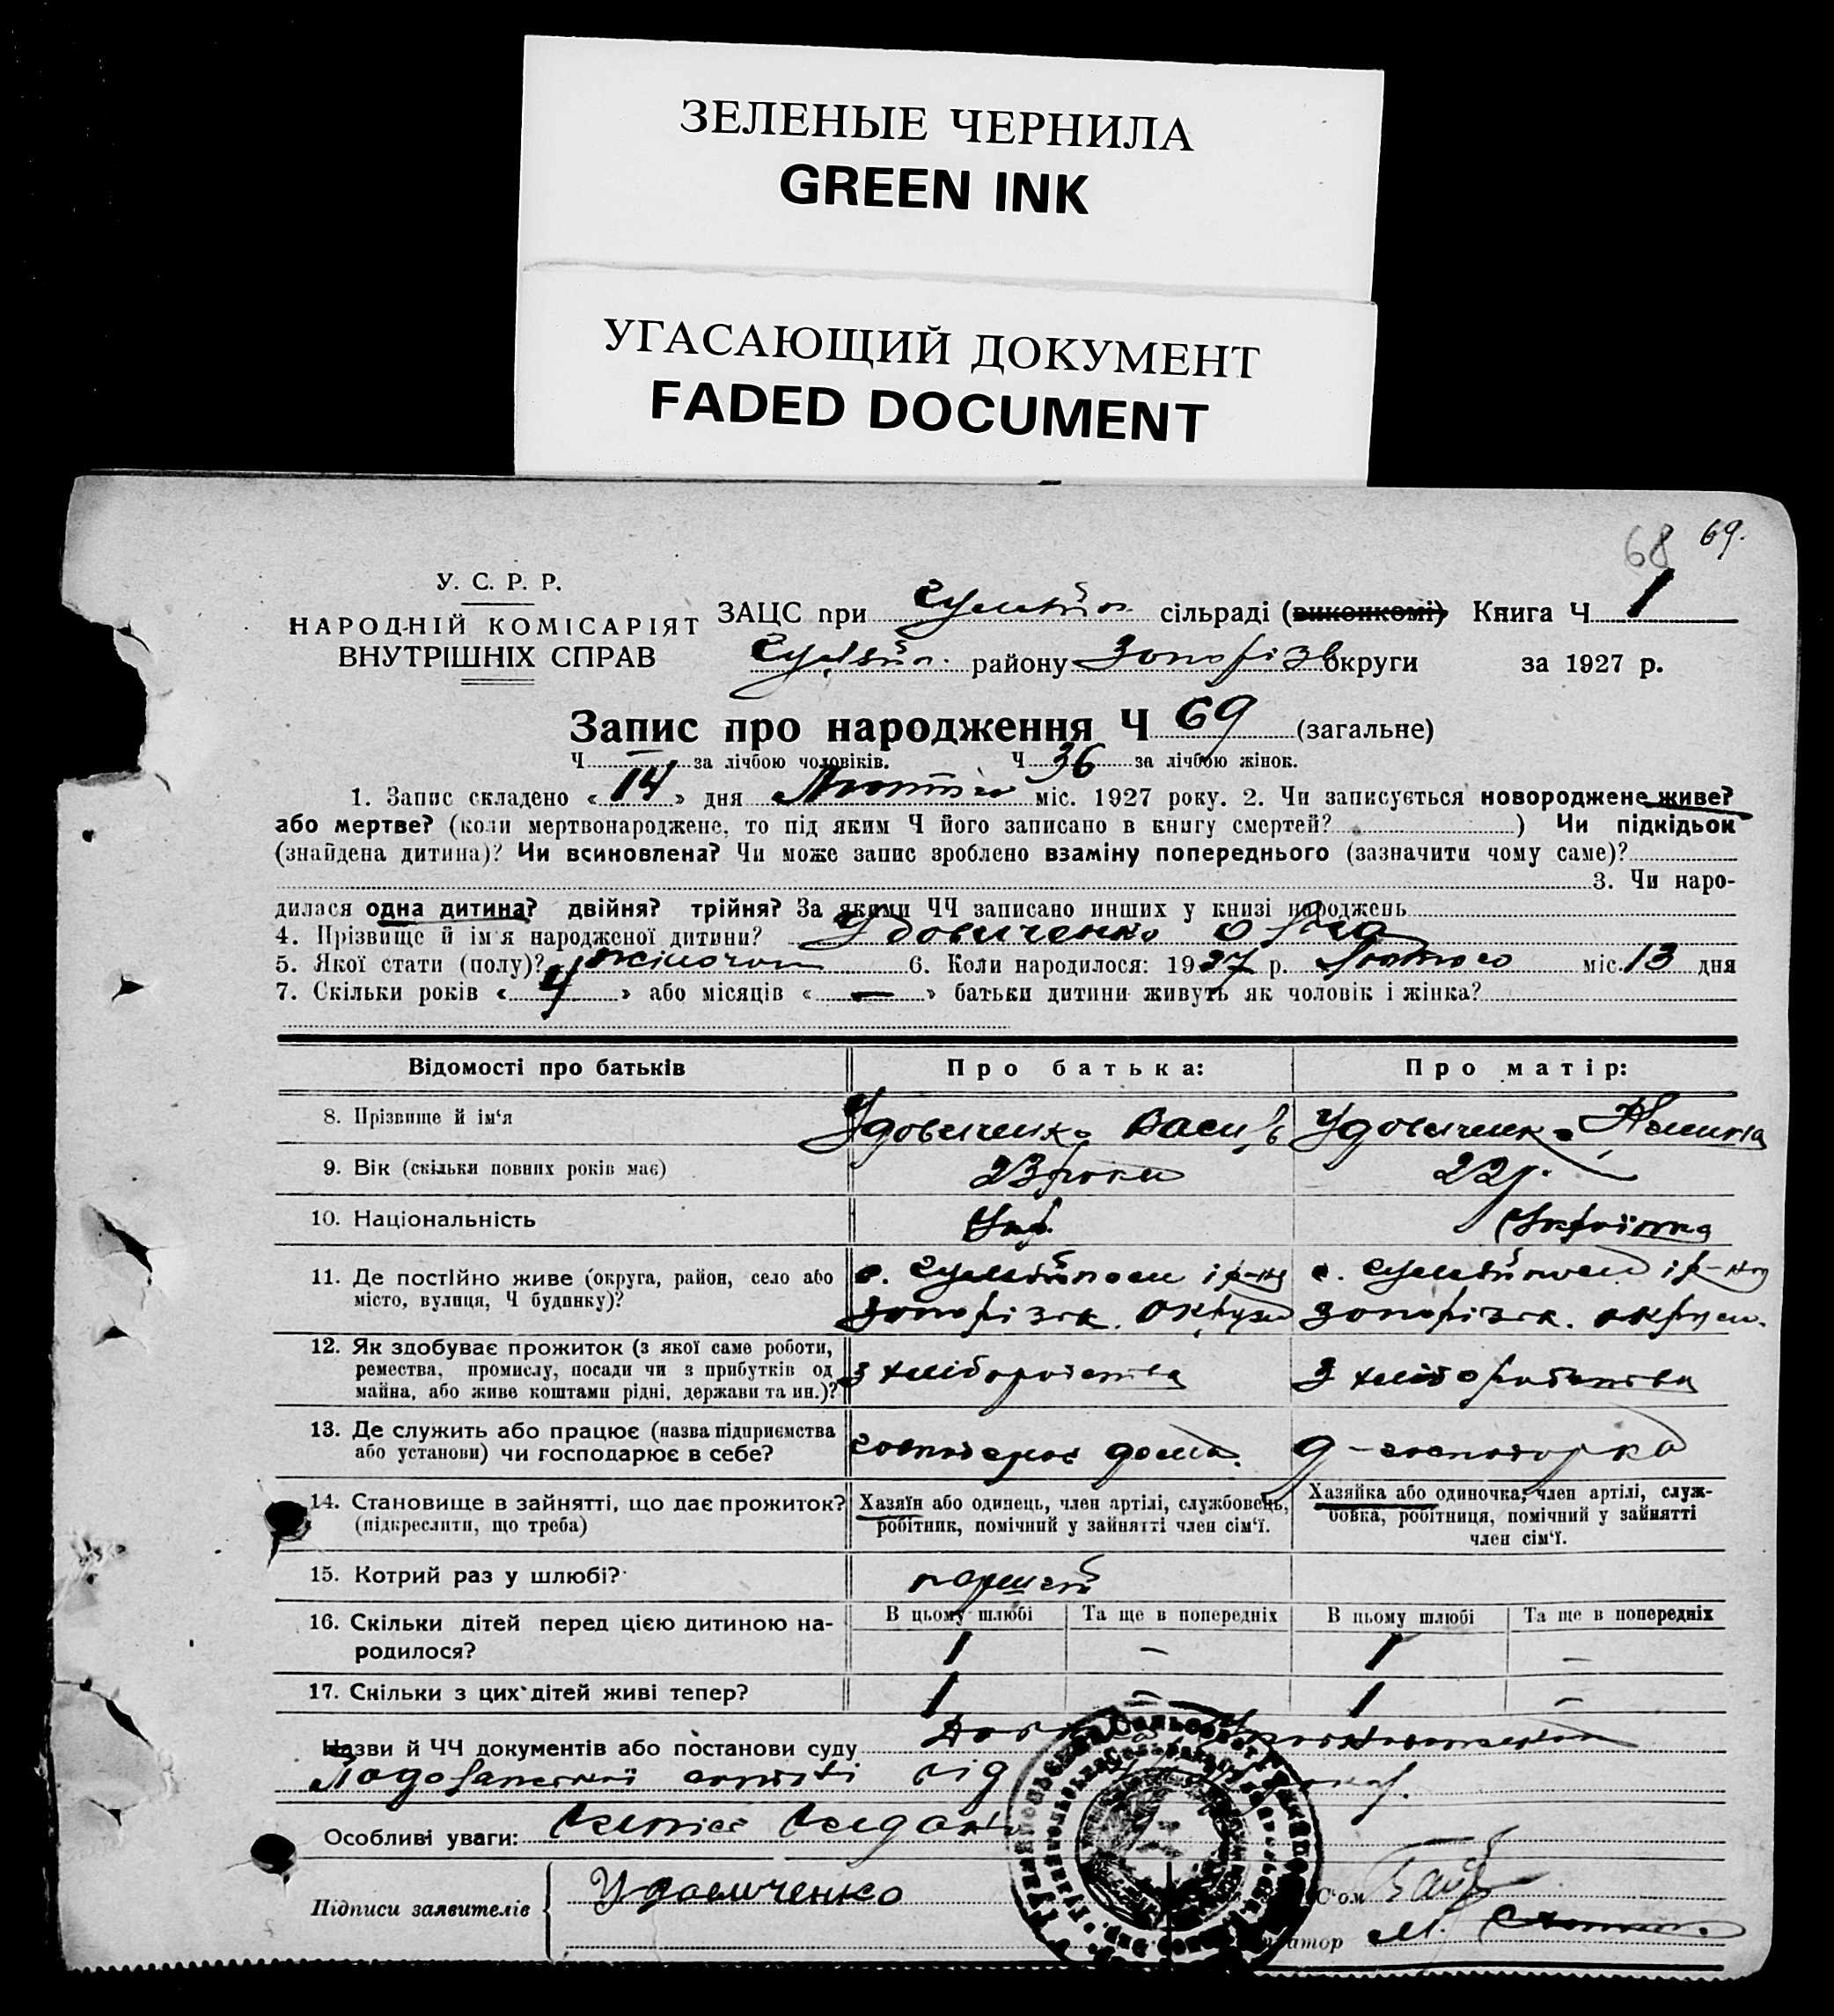 ЗЕЛЕНЫЕ ЧЕРНИЛА
GREEN INK
УГАСАЮЩИЙ ДОКУМЕНТ
FADED DOCUMENT
68 69.
У. С. Р. Р.
НАРОДНІЙ КОМІСАРІЯТ
ВНУТРІШНІХ СПРАВ
ЗАЦС при сільраді (виконкомі) Книга Ч 1
району округи за 1927 р.
Запис про народження Ч 69 (загальне)
Ч — за лічбою чоловіків. Ч 36 за лічбою жінок.
1. Запис складено «14» дня Лютого міс. 1927 року. 2. Чи записується новороджене живе?
або мертве? (коли мертвонароджене, то під яким Ч його записано в книгу смертей?) Чи підкідьок
(знайдена дитина)? Чи всиновлена? Чи може запис зроблено взаміну попереднього (зазначити чому саме)?
3. Чи наро-
дилася одна дитина? двійня? трійня? За якими ЧЧ записано инших у книзі народжень
4. Прізвище й ім'я народженої дитини? Удовиченко
5. Якої стати (полу)? жіночої 6. Коли народилося: 1927 р. Лютого міс. 13 дня
7. Скільки років «4» або місяців «—» батьки дитини живуть як чоловік і жінка?
Відомості про батьків
Про батька:
Про матір:
8. Прізвище й ім'я
Удовиченко Василь
Удовиченко
9. Вік (скільки повних років має)
23 роки
22 р.
10. Національність
Укр.
Українка
11. Де постійно живе (округа, район, село або
місто, вулиця, Ч будинку)?
12. Як здобуває прожиток (з якої саме роботи,
ремества, промислу, посади чи з прибутків од
майна, або живе коштами рідні, держави та ин.)?
з хліборобства
з хліборобства
13. Де служить або працює (назва підприємства
або установи) чи господарює в себе?
господарює дома.
д-господарка
14. Становище в зайнятті, що дає прожиток?
(підкреслити, що треба)
Хазяїн або одинець, член артілі, службовець,
робітник, помічний у зайнятті член сім'ї.
Хазяйка або одиночка, член артілі, служ-
бовка, робітниця, помічний у зайнятті
член сім'ї.
15. Котрий раз у шлюбі?
перший
16. Скільки дітей перед цією дитиною на-
родилося?
В цьому шлюбі Та ще в попередніх В цьому шлюбі Та ще в попередніх
1 — 1 —
17. Скільки з цих дітей живі тепер?
1 — 1 —
Назви й ЧЧ документів або постанови суду
від
Особливі уваги:
Підписи заявителів
Удовиченко